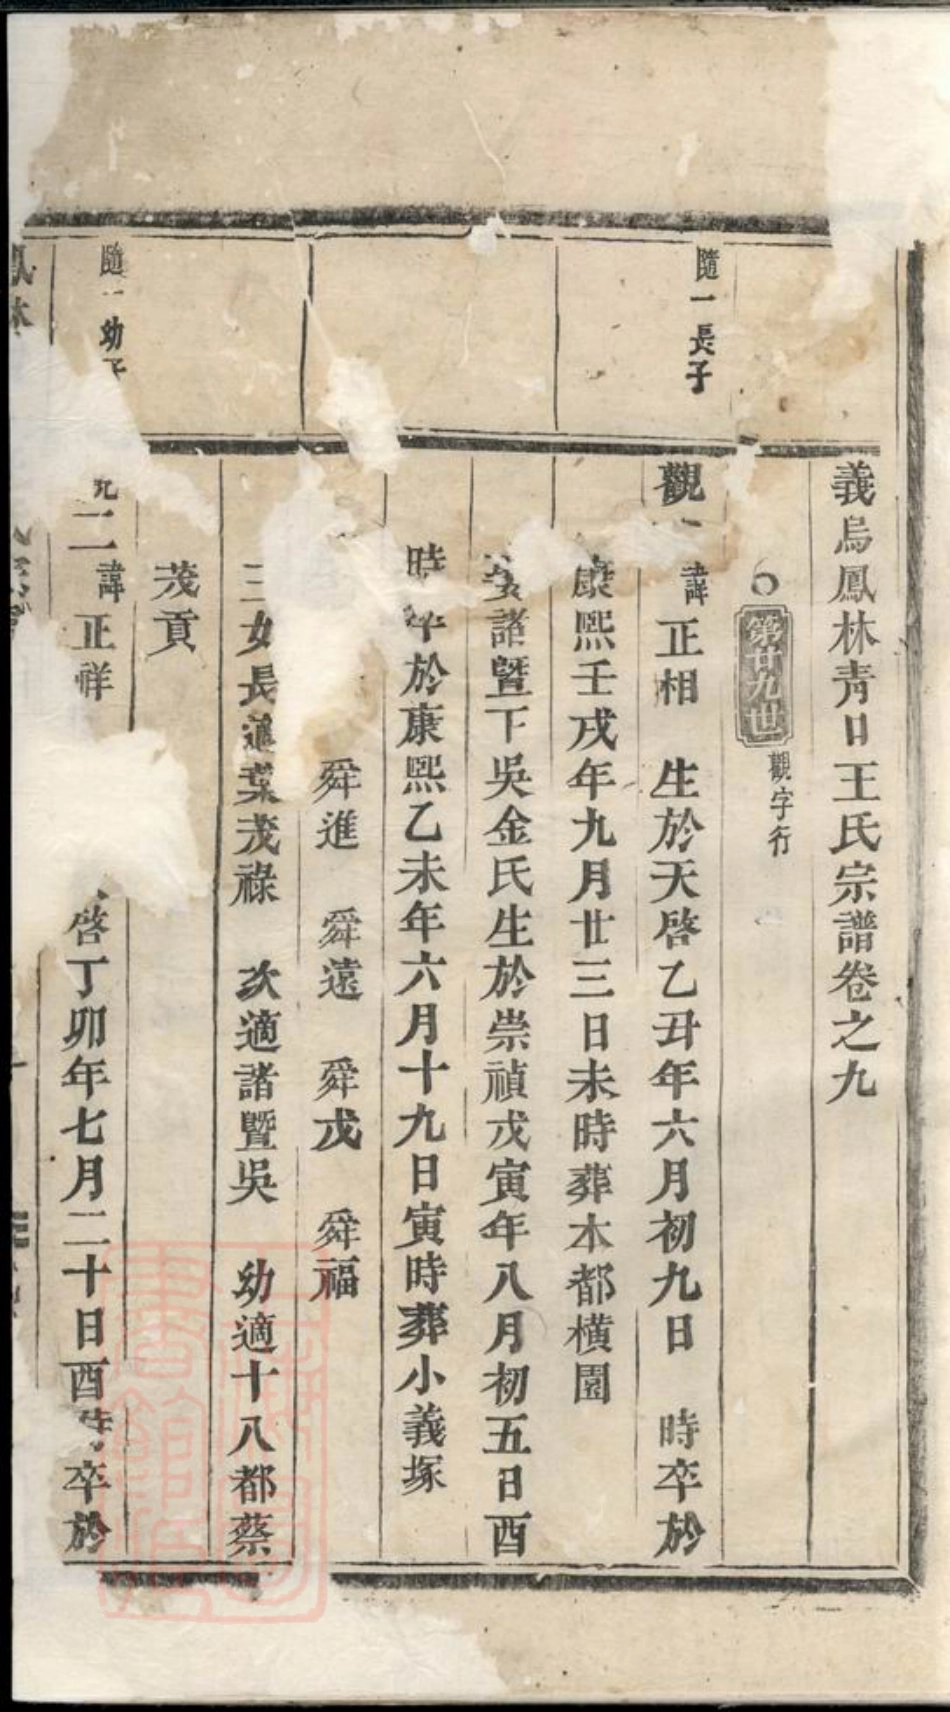 義烏鳳林青口王氏宗譜卷之九
第廿九世 觀字行
隨一長子
觀一 諱正相 生於天啓乙丑年六月初九日 時卒於
康熙壬戌年九月廿三日未時葬本都橫園
娶諸暨下吳金氏生於崇禎戊寅年八月初五日酉
時卒於康熙乙未年六月十九日寅時葬小義塚
舜進 舜遠 舜戊 舜福
三女長適葉茂祿 次適諸暨吳 幼適十八都蔡
茂貢
隨一幼子
二 諱正祥 啓丁卯年七月二十日酉時卒於
鳳林